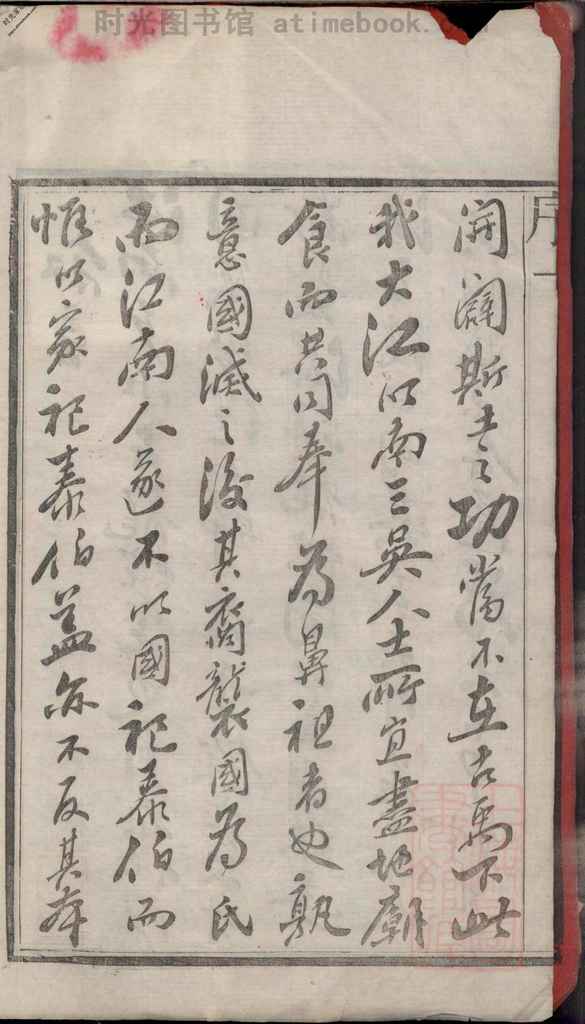 时光图书馆 atimebook.com
序一
開闢斯土之功當不在古禹下此
我大江以南三吳人士所宜盡地廟
食而共同奉為鼻祖者也孰
意國滅之後其裔襲國為氏
而江南人遂不以國祀泰伯而
惟以家祀泰伯蓋亦不反其本